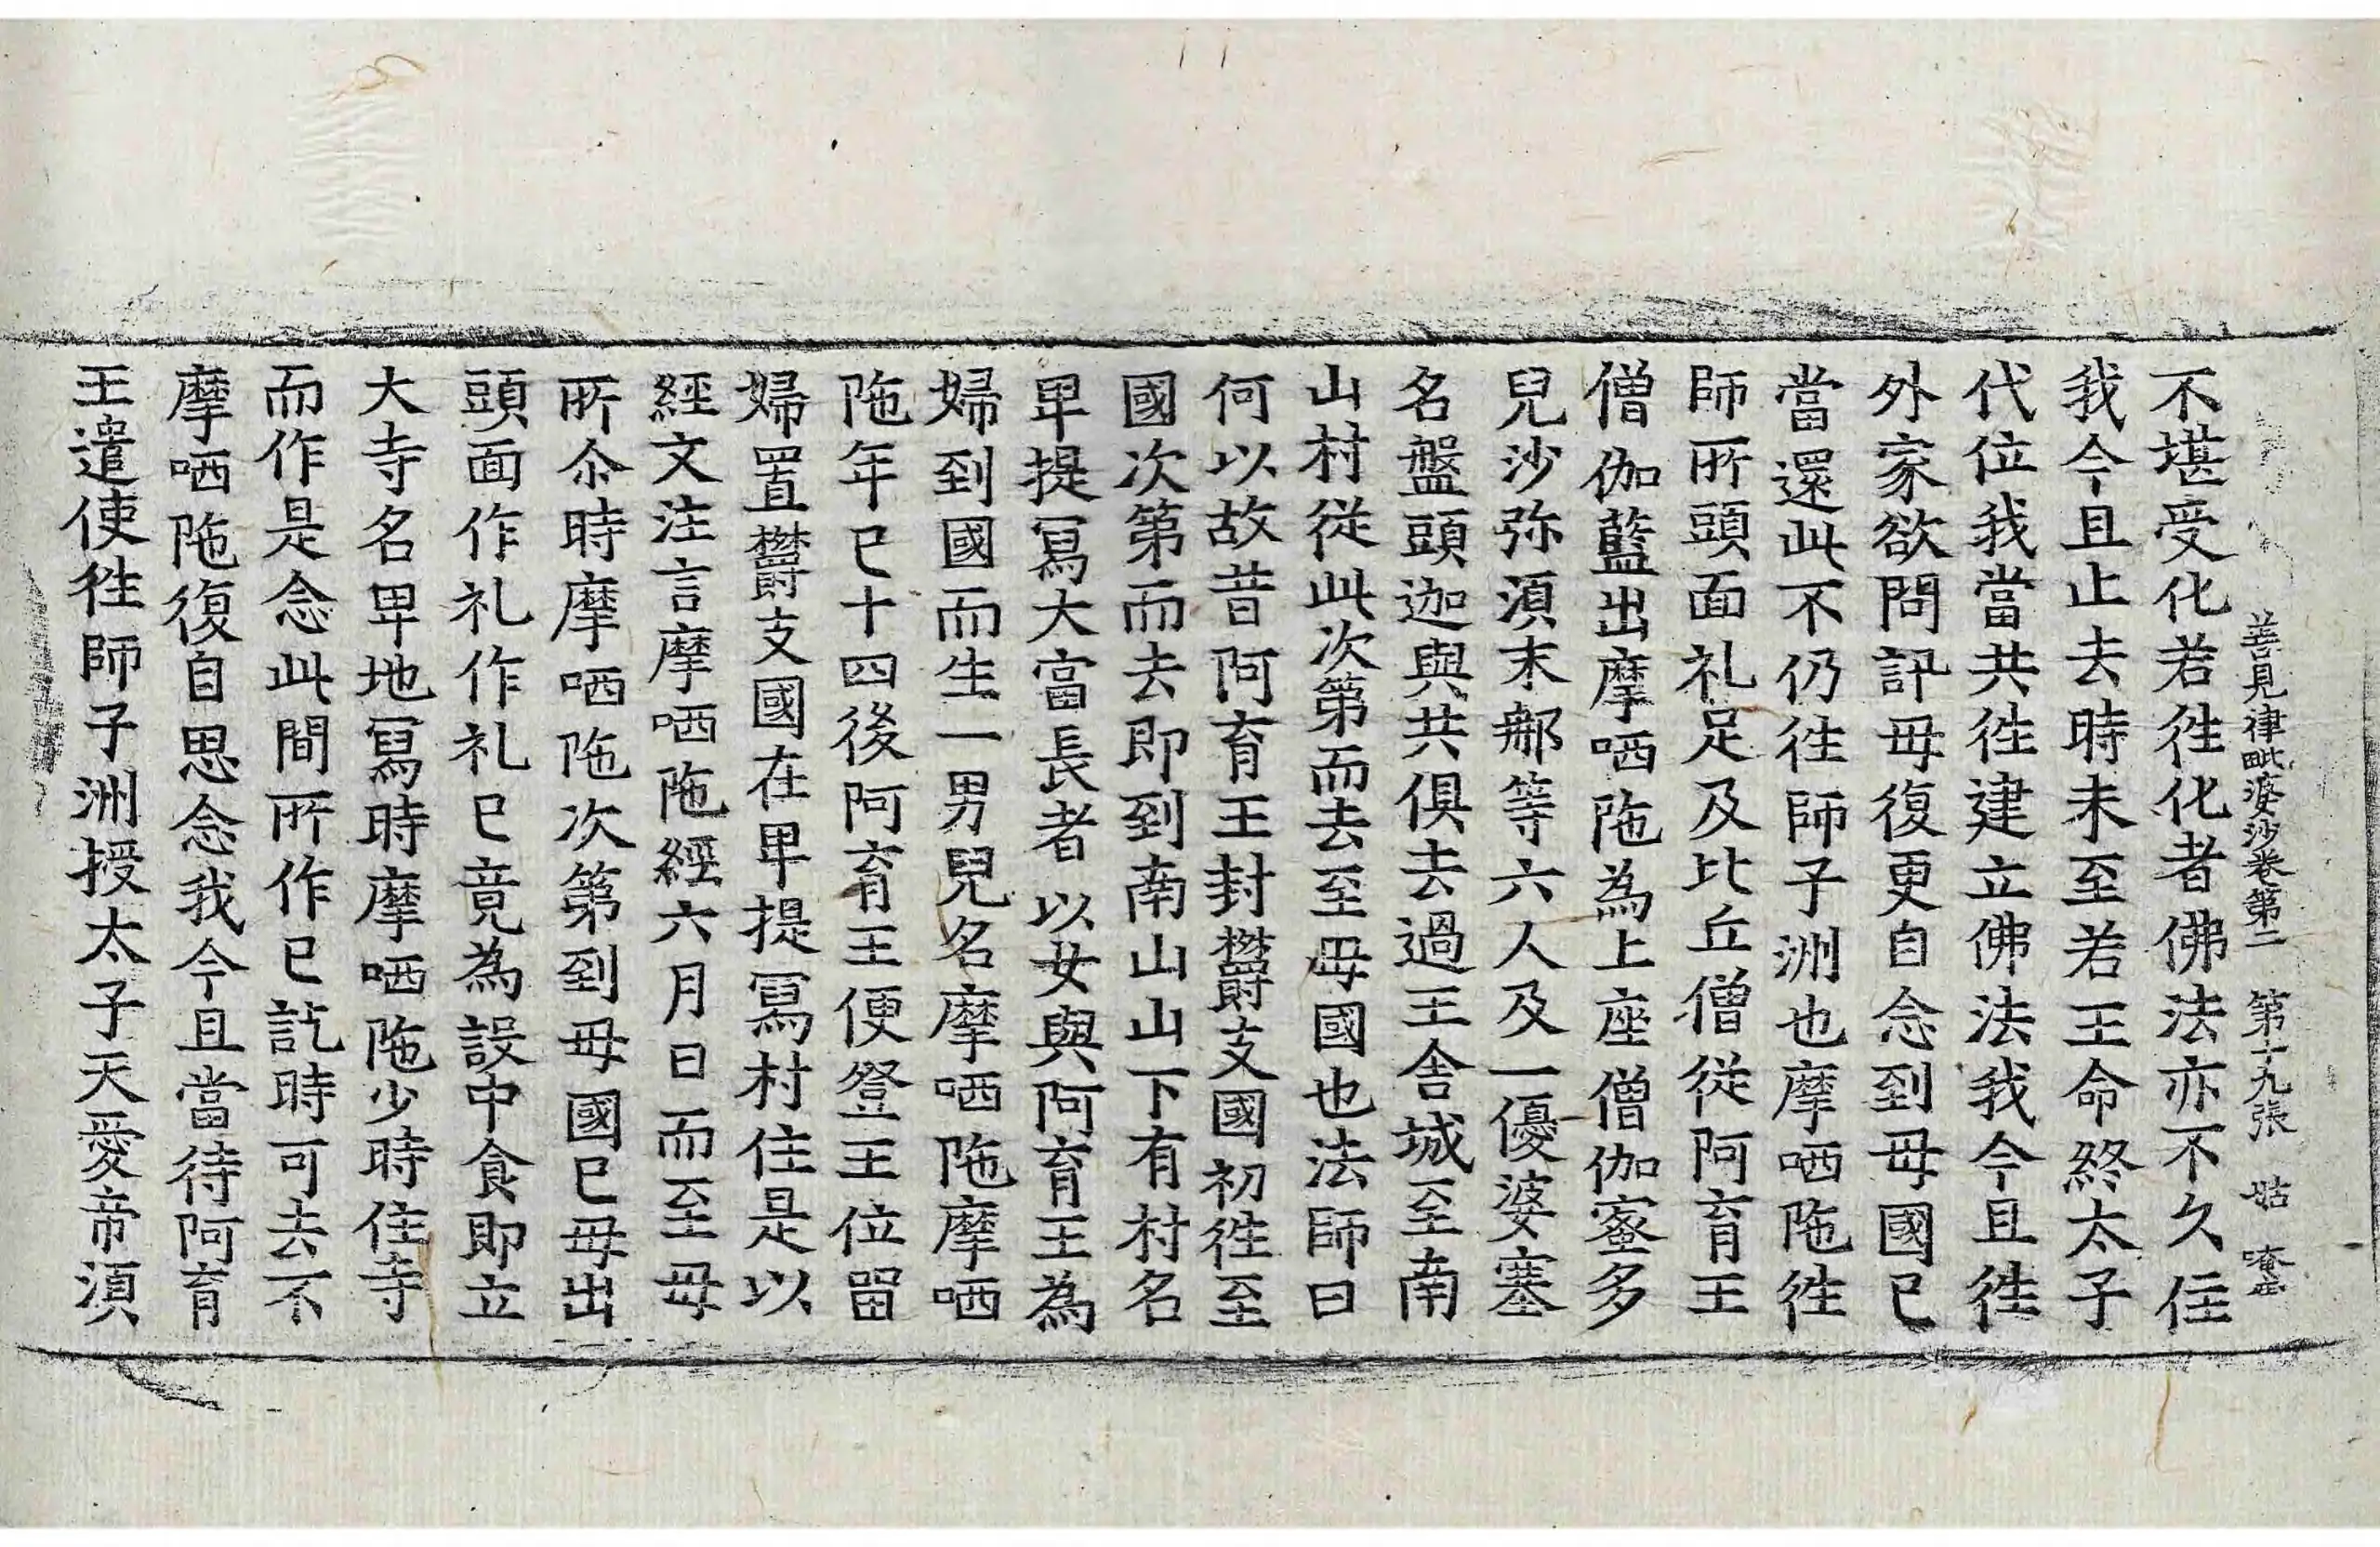 善見律毗婆沙卷第二 第十九張 姑
不堪受化若徃化者佛法亦不久住
我今且止去時未至若王命終太子
代位我當共徃建立佛法我今且徃
外家欲問訊母復更自念到母國已
當還此不仍徃師子洲也摩哂陁徃
師所頭面礼足及比丘僧從阿育王
僧伽藍出摩哂陁為上座僧伽蜜多
兒沙弥湏末那等六人及一優婆塞
名盤頭迦與共俱去過王舍城至南
山村從此次第而去至母國也法師曰
何以故昔阿育王封欝支國初徃至
國次第而去即到南山山下有村名
卑提寫大富長者以女與阿育王為
婦到國而生一男兒名摩哂陁摩哂
陁年已十四後阿育王便登王位留
婦置欝支國在卑提寫村住是以
經文注言摩哂陁經六月日而至母
所尒時摩哂陁次第到母國已母出
頭面作礼作礼已竟為設中食即立
大寺名卑地寫時摩哂陁少時住寺
而作是念此間所作已訖時可去不
摩哂陁復自思念我今且當待阿育
王遣使徃師子洲授太子天愛帝湏